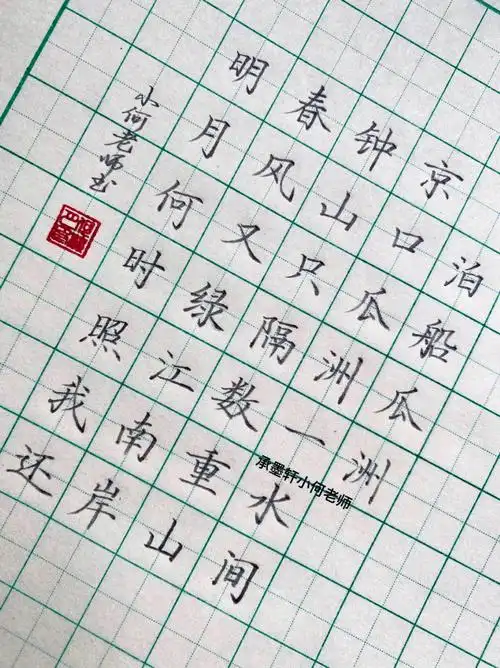 泊船瓜洲
京口瓜洲一水间
钟山只隔数重山
春风又绿江南岸
明月何时照我还
小何老师书
承墨轩小何老师